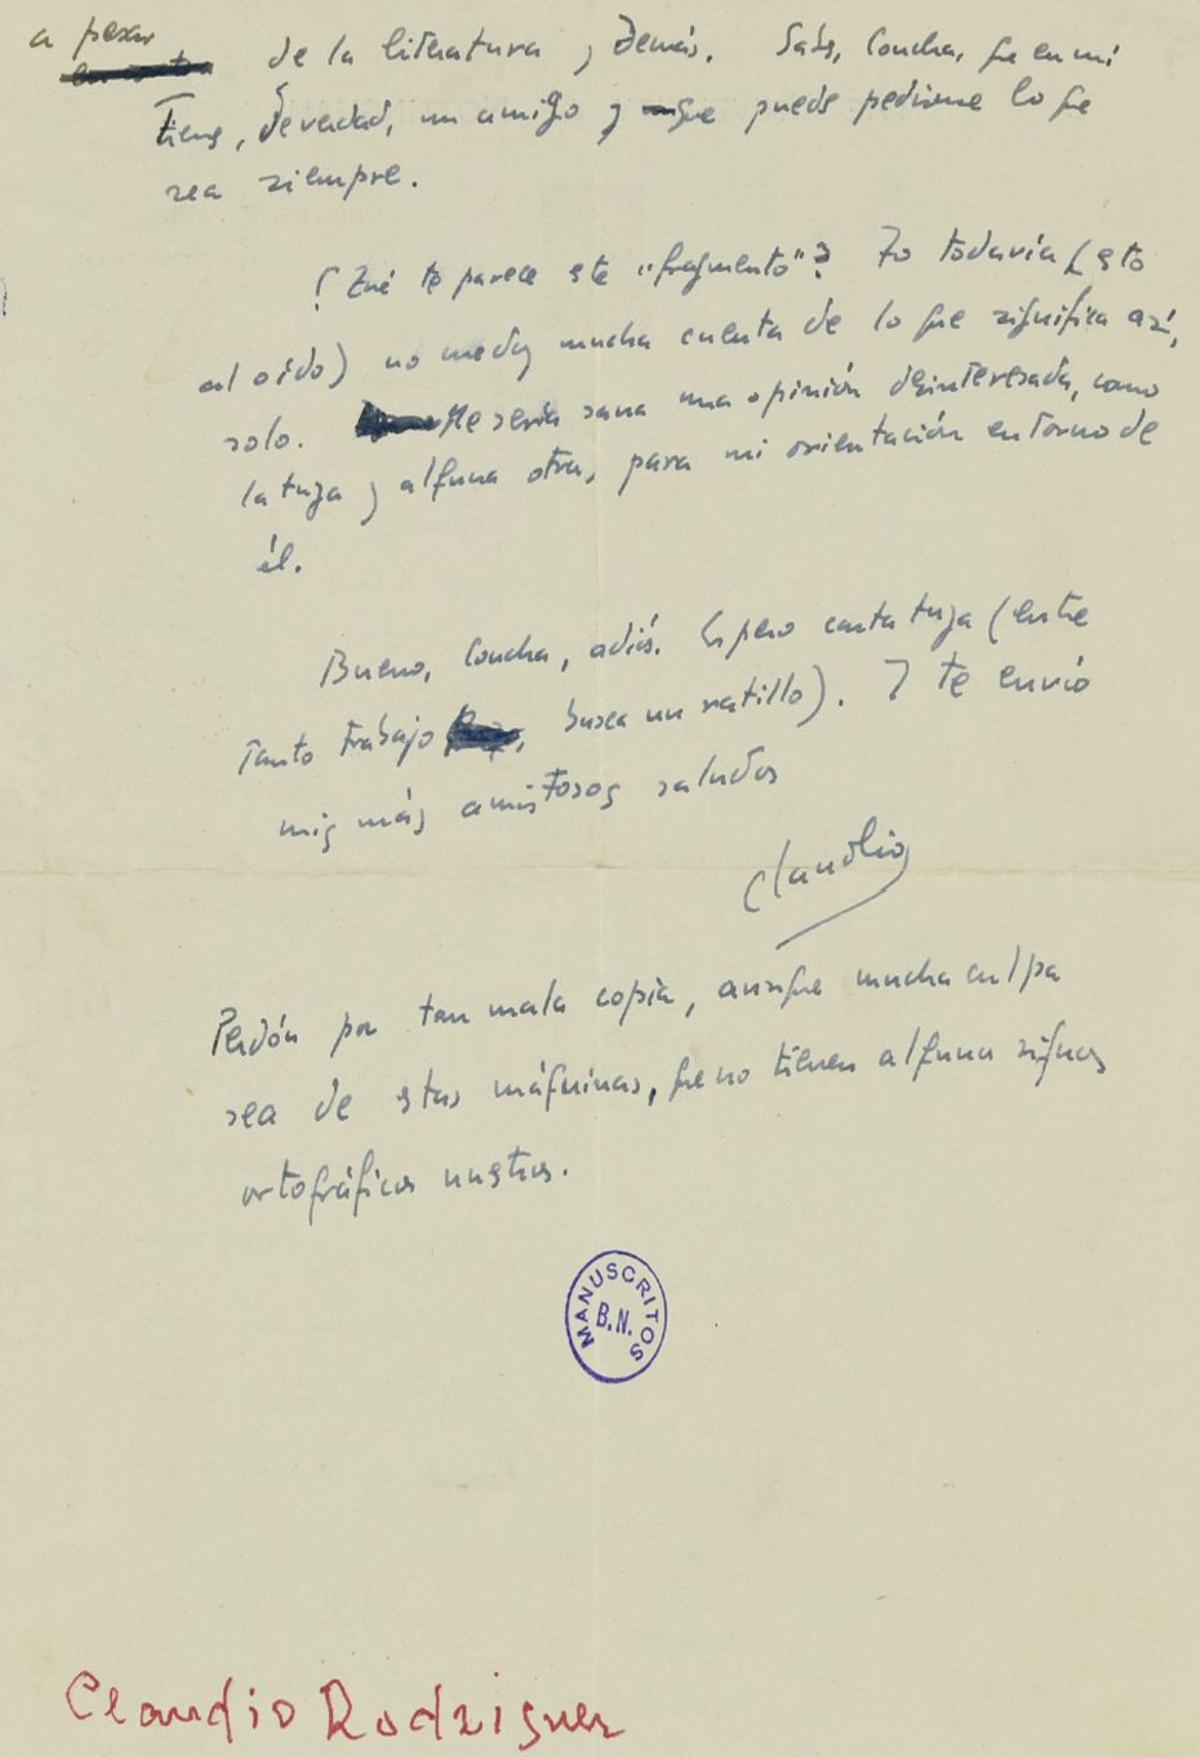 a pesar
de la literatura y demás. Sabes, Concha, que en mí
tienes, de verdad, un amigo y que puedes pedirme lo que
sea siempre.
¿Qué te parece este "fragmento"? Yo todavía (esto
al oído) no me doy mucha cuenta de lo que significa así,
solo. Me sería sana una opinión desinteresada, como
la tuya y alguna otra, para mi orientación en torno de
él.
Bueno, Concha, adiós. Espero carta tuya (entre
tanto trabajo, busca un ratillo). Y te envío
mis más amistosos saludos
Claudio
Perdón por tan mala copia, aunque mucha culpa
sea de estas máquinas, que no tienen alguna signos
ortográficos nuestros.
MANUSCRITOS
B.N.
Claudio Rodriguez